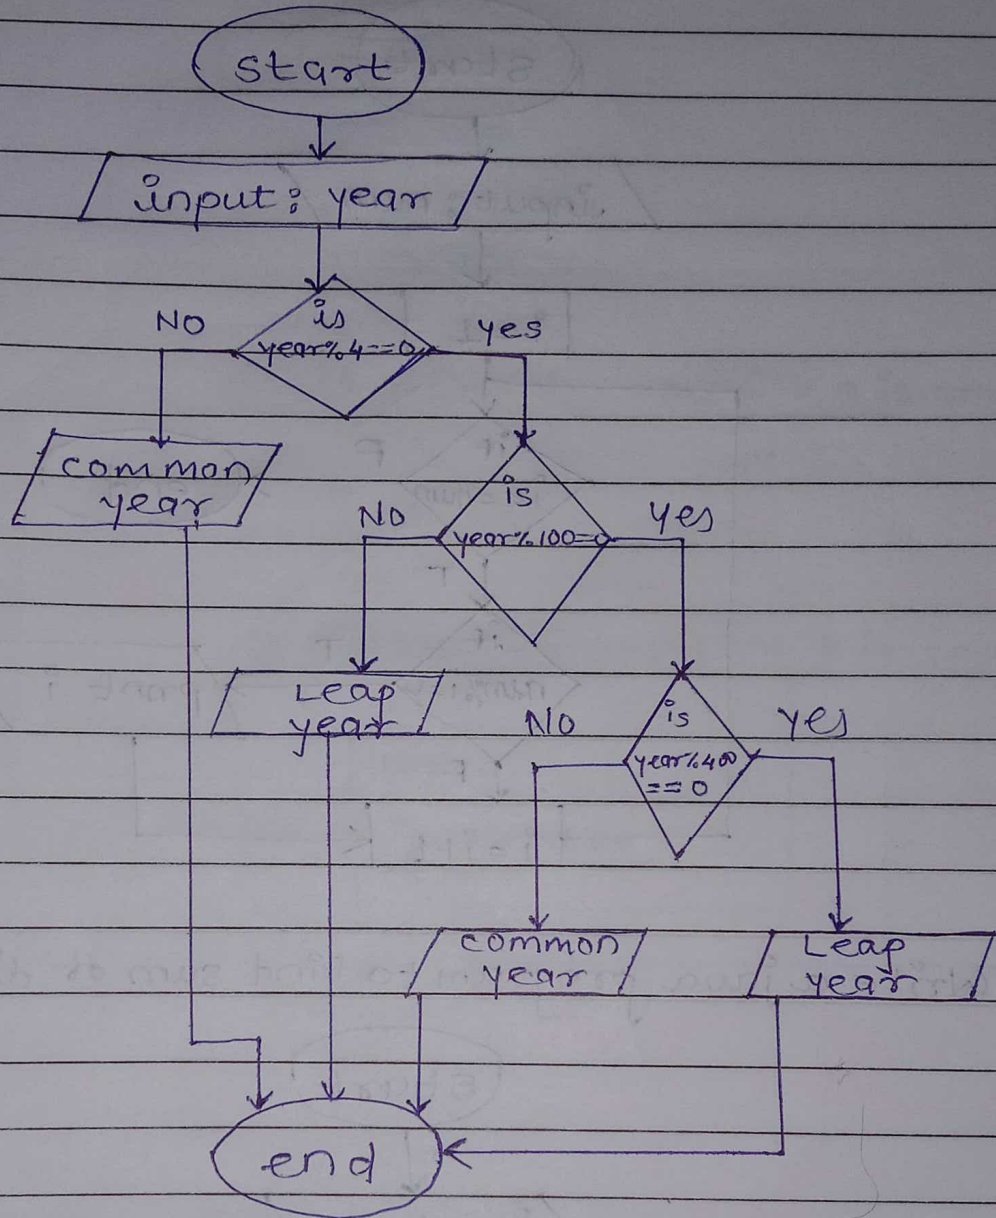 start
input: year
is
year%4==0
NO
yes
common
year
is
year%100=0
NO
yes
Leap
year
is
year%400
==0
NO
yes
common
year
Leap
year
end